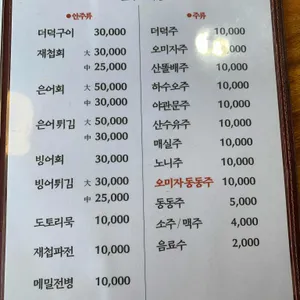 ●안주류
더덕구이 30,000
재첩회 大 30,000
中 25,000
은어회 大 50,000
中 30,000
은어튀김 大 50,000
中 30,000
빙어회 30,000
빙어튀김 大 30,000
中 25,000
도토리묵 10,000
재첩파전 10,000
메밀전병 10,000
●주류
더덕주 10,000
오미자주 10,000
산뽕배주 10,000
하수오주 10,000
야관문주 10,000
산수유주 10,000
매실주 10,000
노니주 10,000
오미자동동주 10,000
동동주 5,000
소주/맥주 4,000
음료수 2,000